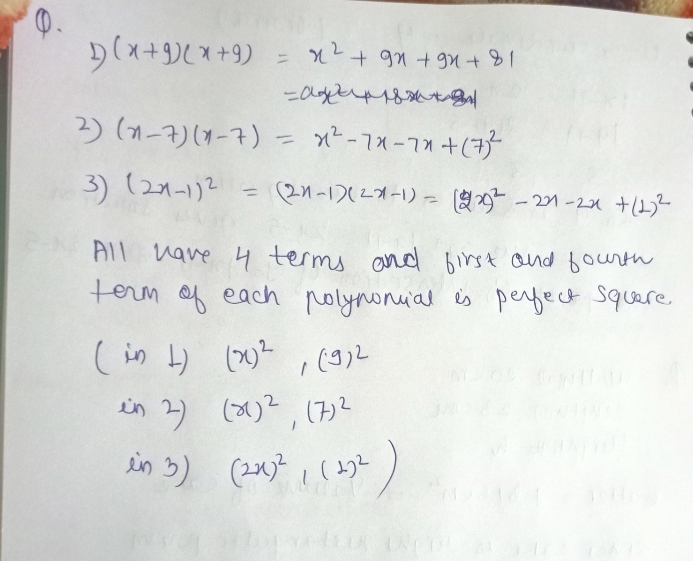 Q.
1) (x+9)(x+9) = x² + 9x + 9x + 81
2) (x-7)(x-7) = x² - 7x - 7x + (7)²
3) (2x-1)² = (2x-1)(2x-1) = (2x)² - 2x - 2x + (1)²
All have 4 terms and first and fourth
term of each polynomial is perfect square.
( in 1) (x)² , (9)²
in 2) (x)² , (7)²
in 3) (2x)² , (1)² )